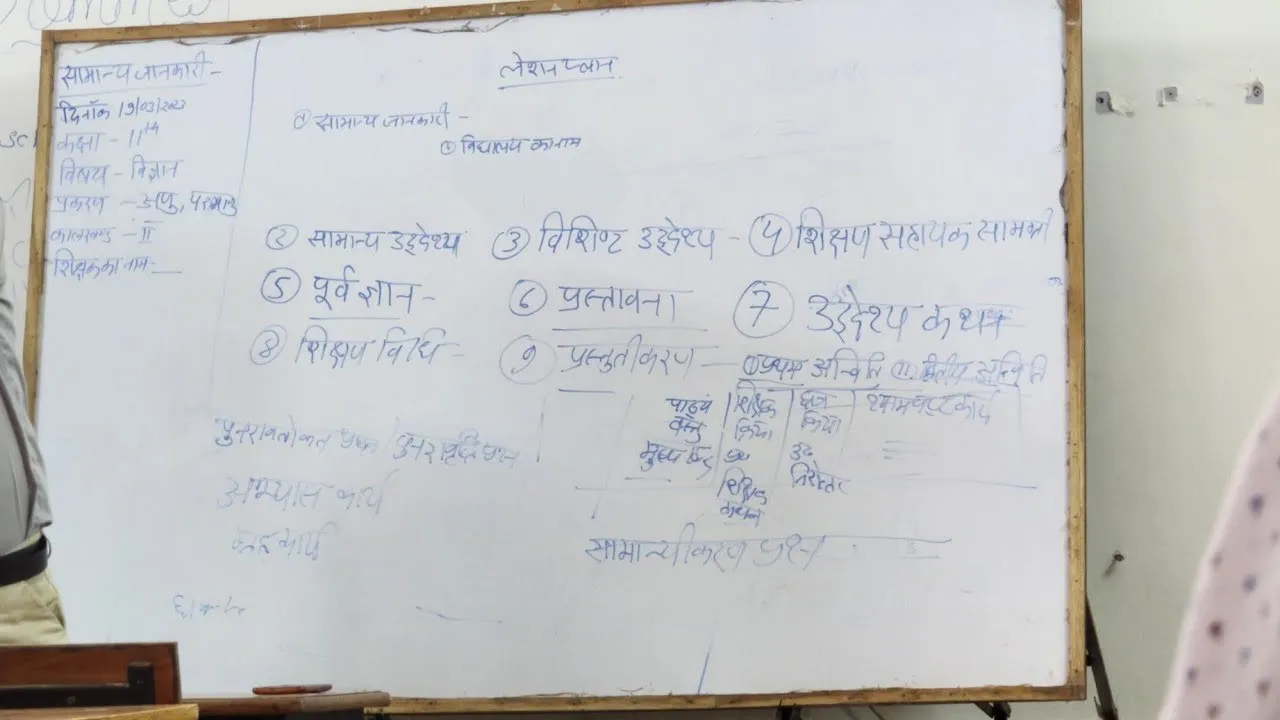 लेशन प्लान
सामान्य जानकारी -
दिनाँक 19/03/2023
कक्षा - 11th
विषय - विज्ञान
प्रकरण - अणु, परमाणु
कालखण्ड - II
शिक्षक का नाम - __
① सामान्य जानकारी -
① विद्यालय का नाम
② सामान्य उद्देश्य ③ विशिष्ट उद्देश्य - ④ शिक्षण सहायक सामग्री
⑤ पूर्व ज्ञान - ⑥ प्रस्तावना ⑦ उद्देश्य कथन
⑧ शिक्षण विधि - ⑨ प्रस्तुतीकरण - ① प्रथम अन्विति ⑪ द्वितीय अन्विति
पाठ्य वस्तु | शिक्षक क्रिया | छात्र क्रिया | श्यामपट्ट कार्य
मुख्य बिन्दु
निरुत्तर
शिक्षक
कथन
सामान्यीकरण प्रश्न
पुनरावलोकन प्रश्न / पुनरावृत्ति प्रश्न
अभ्यास कार्य
गृह कार्य